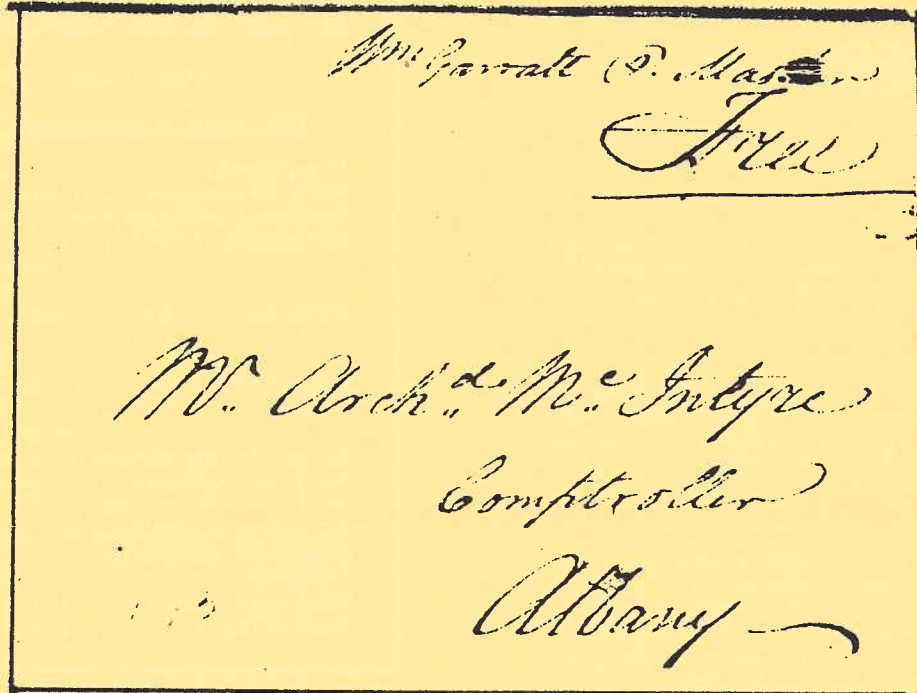 Wm Garratt P. Master
Free
Mr. Arch.d Mc.Intyre
Comptroller
Albany